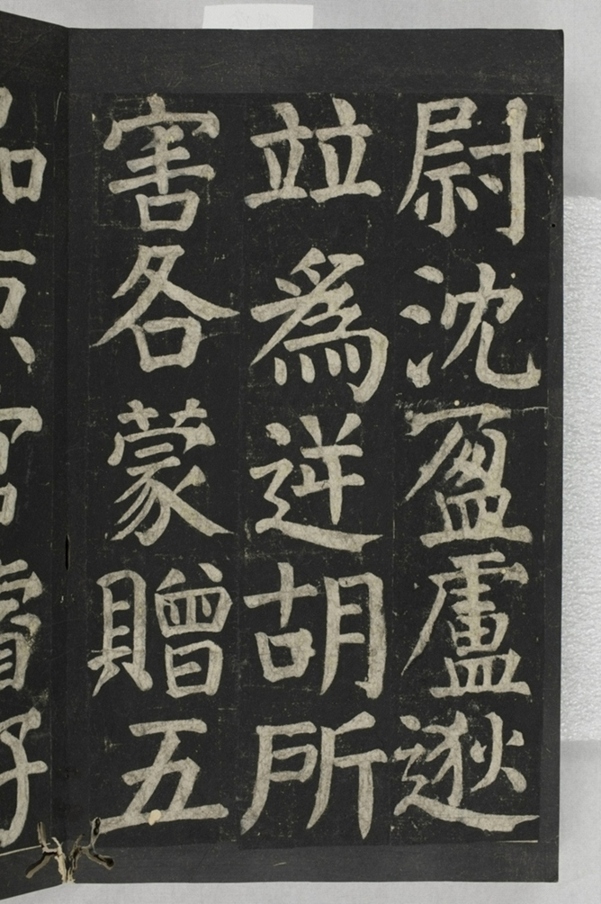 尉沈盈盧逖
竝爲逆胡所
害各蒙贈五